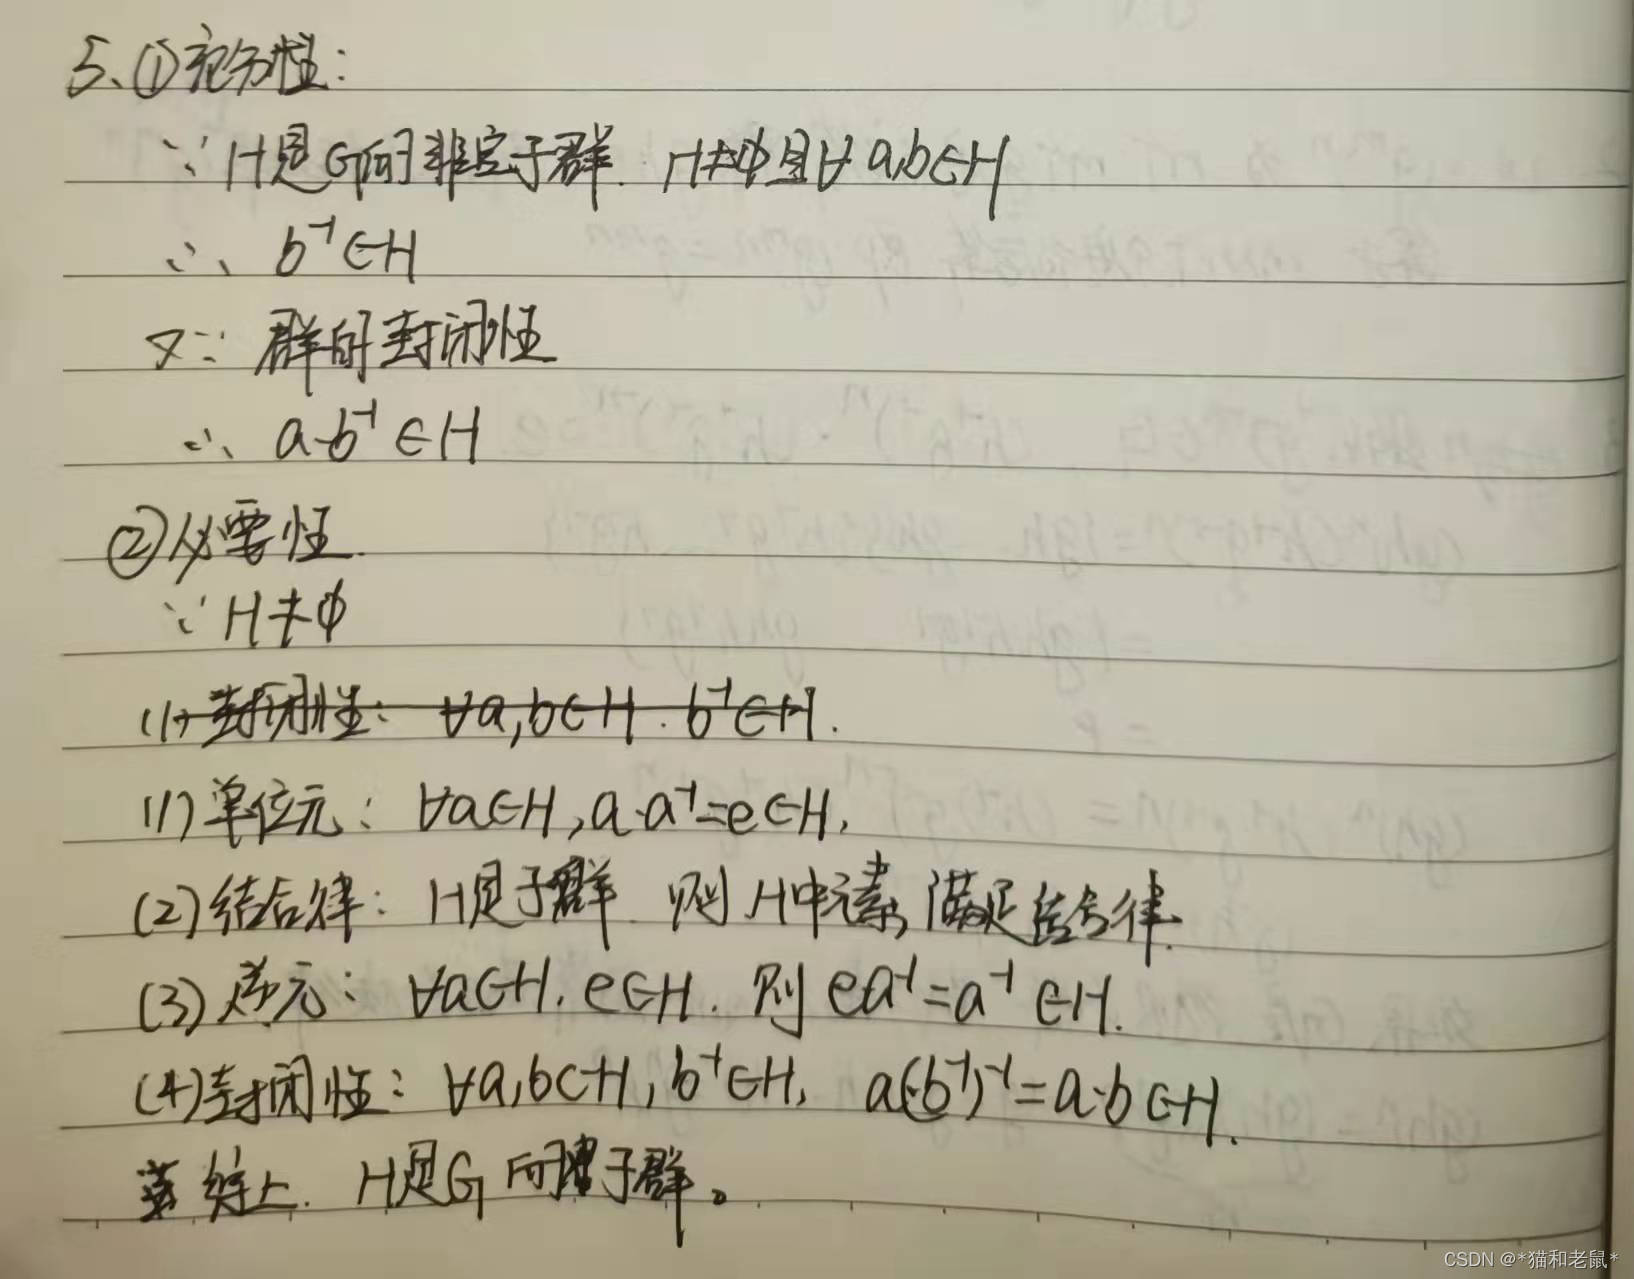 5、①充分性：
∵H是G的非空子群. H≠ϕ且∀a,b∈H
∴ b⁻¹∈H
又∵群的封闭性
∴ a·b⁻¹∈H
②必要性.
∵H≠ϕ
(1)封闭性：∀a,b∈H. b⁻¹∈H.
(1)单位元：∀a∈H,a·a⁻¹=e∈H,
(2)结合律：H是子群.则H中元素满足结合律.
(3)逆元：∀a∈H.e∈H.则ea⁻¹=a⁻¹∈H.
(4)封闭性：∀a,b∈H,b⁻¹∈H, a(b⁻¹)⁻¹=a·b∈H.
综上.H是G的子群。
CSDN @*猫和老鼠*